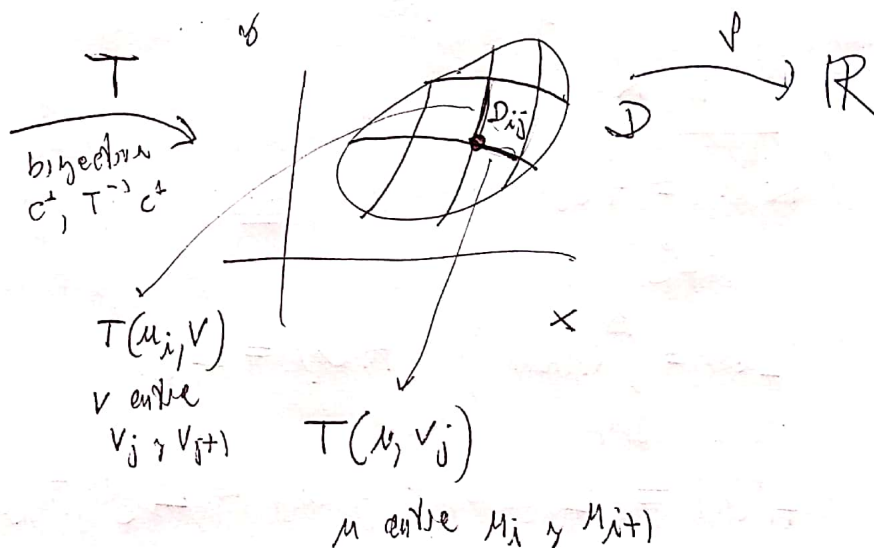 T
biyectiva
C¹, T⁻¹ C¹
y
x
D_ij
D
f
ℝ
T(u_i, v)
v entre
v_j y v_j+1
T(u, v_j)
u entre u_i y u_i+1